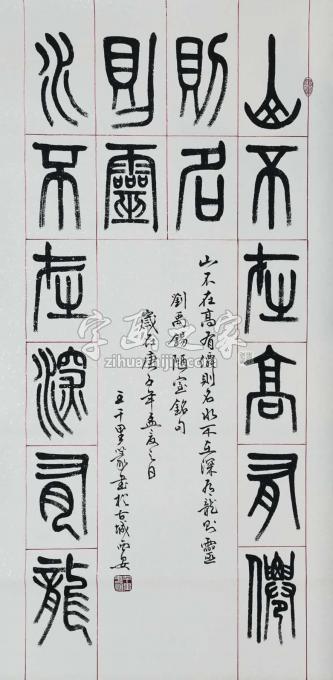 山不在高有僊
則名
水不在深有龍
則靈
山不在高有僊則名水不在深有龍則靈
劉禹錫陋室銘句
歲在庚子年孟夏之日
王千里篆書於古城西安
字画世家